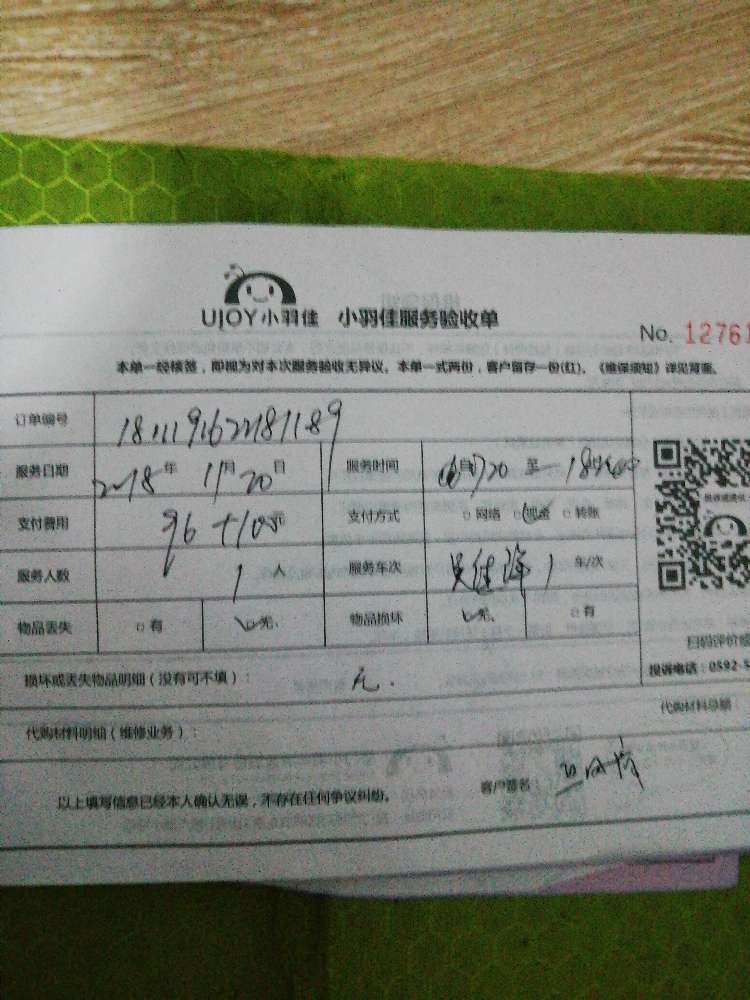 UJOY小羽佳 小羽佳服务验收单
No. 12761
本单一经核签，即视为对本次服务验收无异议。本单一式两份，客户留存一份(红)。《维保须知》详见背面。
订单编号
服务日期 2018年 11月 20日 服务时间 至
支付费用 96+100元 支付方式 □网络 □现金 □转账
服务人数 1人 服务车次 1 车/次
物品丢失 □有 □无 物品损坏 □无 □有
扫码评价或
投诉电话：0592-5
损坏或丢失物品明细（没有可不填）： 无.
代购材料明细（维修业务）： 代购材料总额：
以上填写信息已经本人确认无误，不存在任何争议纠纷。 客户签名